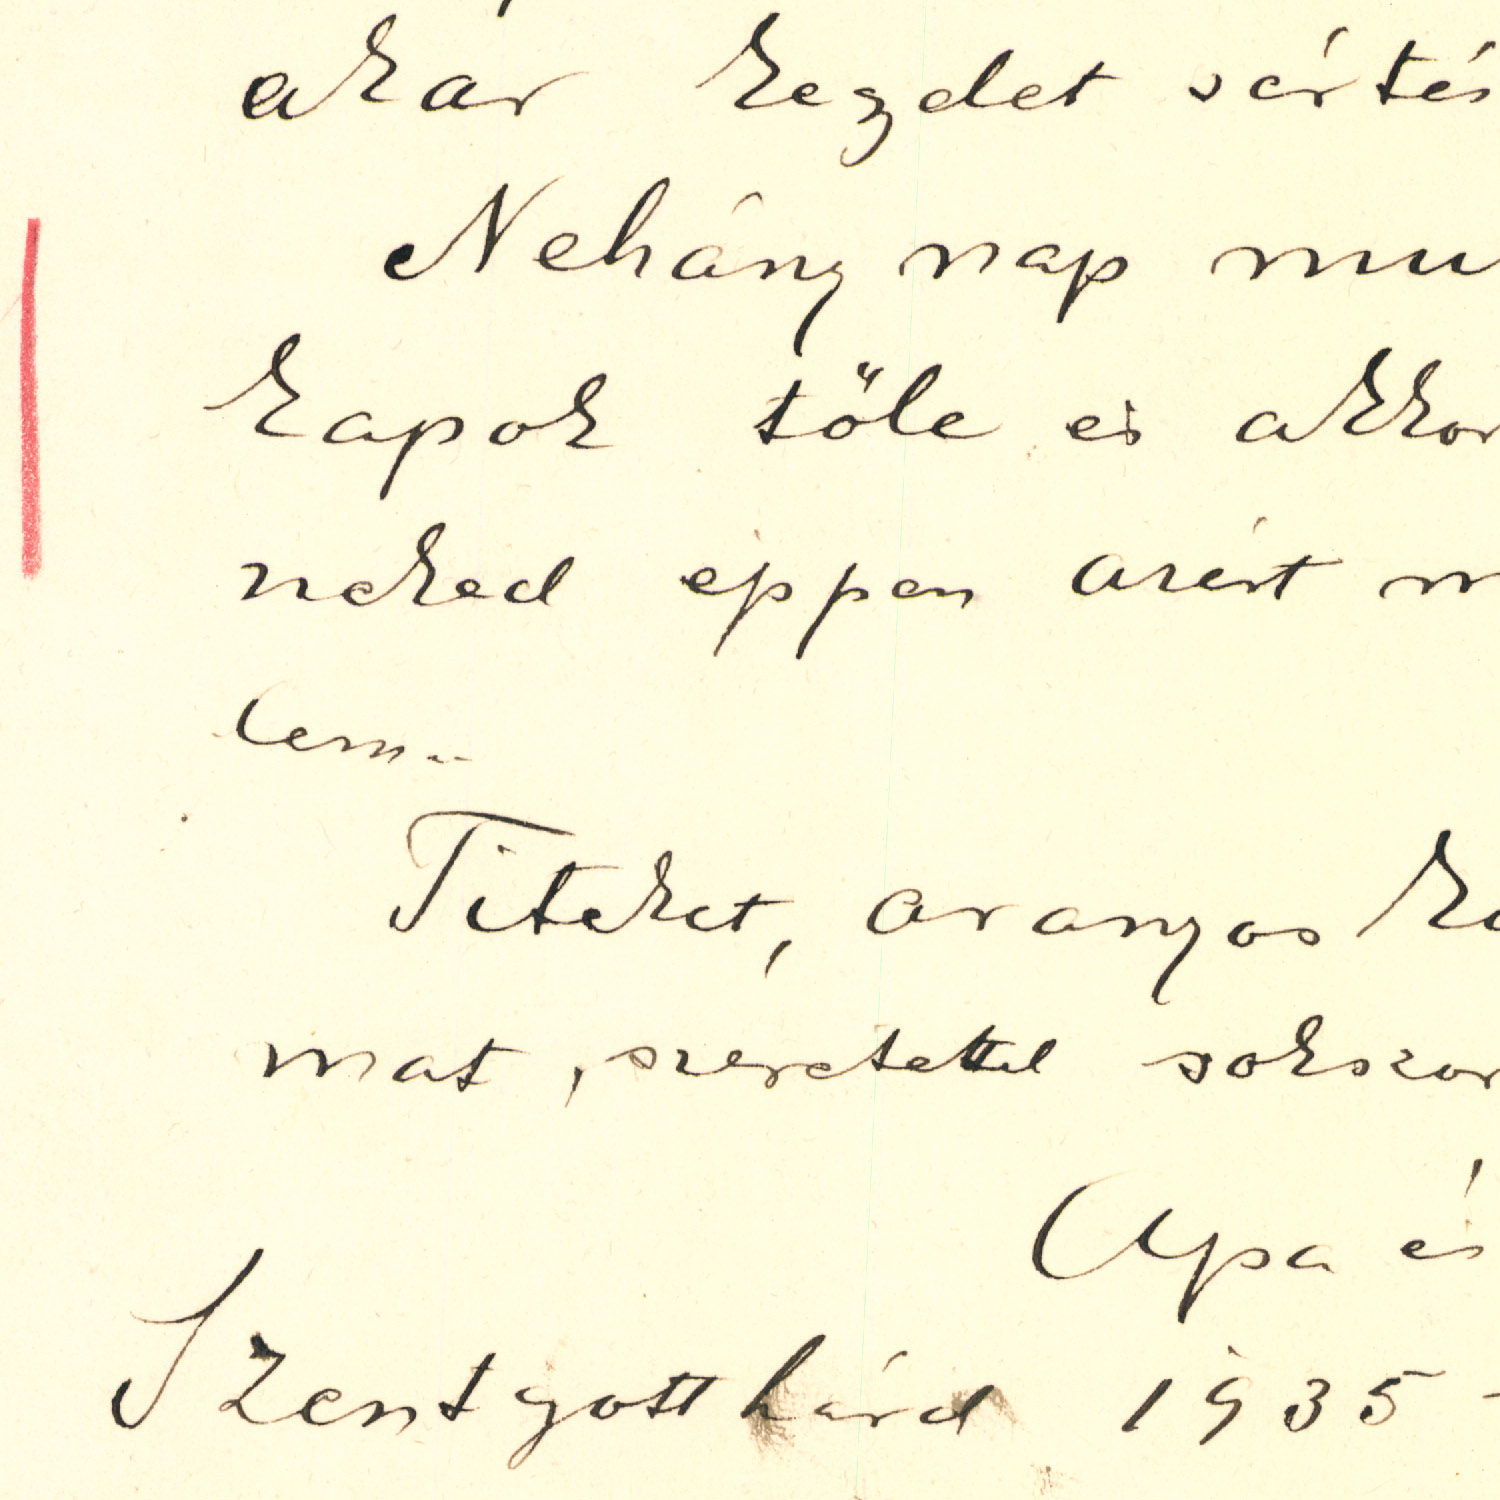 akar kezdet sértés
Nehány nap mu
kapok tőle és akkor
neked éppen azért m
lem..
Titeket, aranyos ko
mat, szeretettel sokszor
Apa és
Szentgotthárd 1935 -